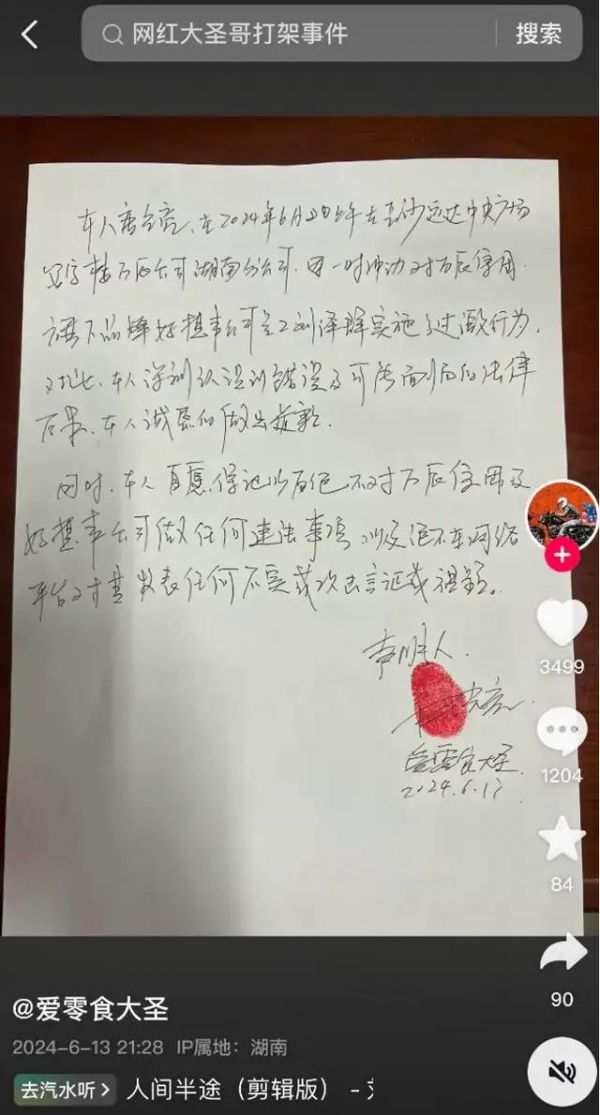 网红大圣哥打架事件
搜索
本人唐 在2024年6月 上午在长沙运达中央广场
写字楼万辰公司湖南分公司,因一时冲动对万辰集团
旗下品牌好想来公司员工刘泽群实施了过激行为,
对此,本人深刻认识到错误及可能面临的法律
后果,本人诚恳的做出道歉
同时,本人自愿保证以后绝不对万辰集团及
好想来公司做任何违法事项,以及绝不在网络
平台对其发表任何不实或攻击言论或视频。
声明人.
爱零食大圣
2024.6.13
3499
1204
84
90
@爱零食大圣
2024-6-13 21:28 IP属地:湖南
去汽水听 >
人间半途(剪辑版) -